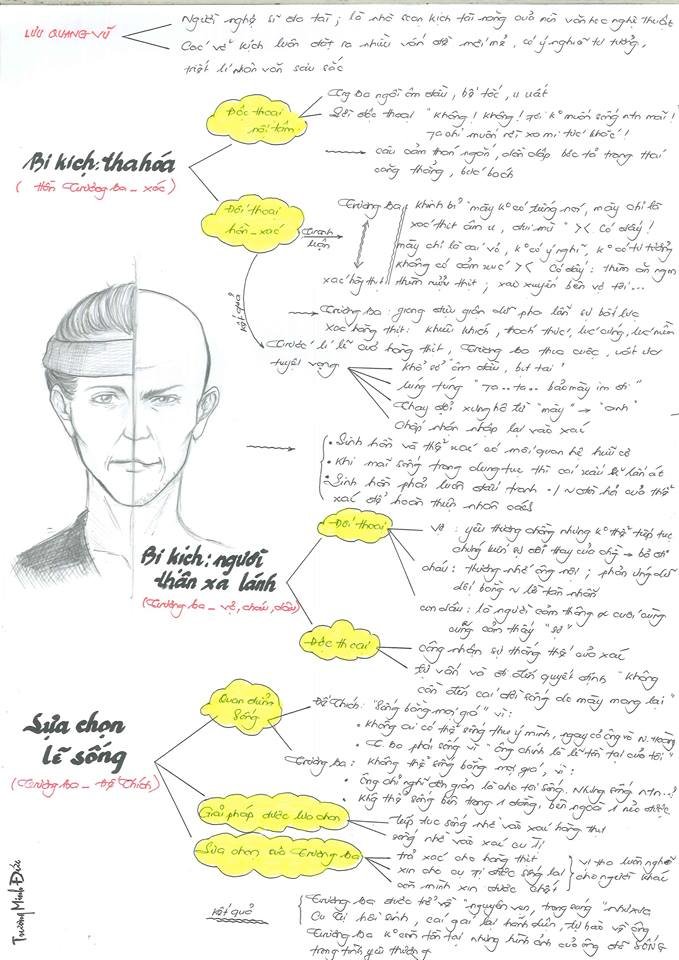 LƯU QUANG VŨ
Người nghệ sĩ đa tài; là nhà soạn kịch tài năng của nền văn học nghệ thuật
Các vở kịch luôn đặt ra nhiều vấn đề mới mẻ, có ý nghĩa tư tưởng,
triết lí nhân văn sâu sắc
Bi kịch: tha hóa
(Hồn Trương Ba – xác)
Độc thoại
nội tâm
Trg Ba ngồi ôm đầu, bế tắc, u uất
Lời độc thoại "không! không! Tôi k° muốn sống ntn mãi!
Ta chỉ muốn rời xa mi tức khắc!
câu cảm thán ngắn, dồn dập bộc lộ trạng thái
căng thẳng, bức bách
Đối thoại
hồn – xác
Tranh
luận
Trương Ba
khinh bỉ "mày k° có tiếng nói, mày chỉ là
xác thịt âm u, đui mù" >< Có đấy!
mày chỉ là cái vỏ, k° có ý nghĩ, k° có tư tưởng
không có cảm xúc >< Có đấy: thèm ăn ngon
xác hàng thịt
thèm rượu thịt; xao xuyến bên vợ tôi...
Trương Ba: giọng điệu giận dữ pha lẫn sự bất lực
Xác hàng thịt: khiêu khích, thách thức, lúc cứng, lúc mềm
kết quả
Trước lí lẽ của hàng thịt, Trương Ba thua cuộc, rất
tuyệt vọng
khổ sở ôm đầu, bịt tai!
lúng túng "Ta.. ta.. bảo mày im đi"
Thay đổi xưng hô từ "mày" → "anh"
Chấp nhận nhập lại vào xác
• Linh hồn và thể xác có mối quan hệ hữu cơ
• Khi mãi sống trong dung tục thì cái xấu sẽ lấn át
• Linh hồn phải luôn đấu tranh đòi hỏi của thể
xác để hoàn thiện nhân cách
Bi kịch: người
thân xa lánh
(Trương Ba – vợ, cháu, dâu)
Đối thoại
Vợ: yêu thương chồng nhưng k° thể tiếp tục
chứng kiến sự đổi thay của chồng → bỏ đi
cháu: thương nhớ ông nội; phản ứng dữ
dội bằng lời tàn nhẫn
con dâu: là người cảm thông cuối cùng
cũng cảm thấy "sợ"
Độc thoại
công nhận sự thắng thế của xác
tự vấn và đi đến quyết định "không
cần đến cái đời sống do mày mang lại"
Lựa chọn
lẽ sống
(Trương Ba – Đế Thích)
Quan điểm
sống
Đế Thích: "Sống bằng mọi giá" vì:
• không ai có thể sống theo ý mình, ngay cả ông và N. Hoàng
• T. Ba phải sống vì "ông chính là lẽ tồn tại của tôi"
Trương Ba: không thể sống bằng mọi giá, vì:
• ông chỉ nghĩ đơn giản là cho tôi sống. Nhưng sống ntn..?
• khg thể sống bên trong 1 đằng, bên ngoài 1 nẻo được
Giải pháp được lựa chọn
tiếp tục sống nhờ vào xác hàng thịt
sống nhờ vào xác cu Tị
Lựa chọn của Trương Ba
trả xác cho hàng thịt
xin cho cu Tị được sống lại
còn mình xin được chết
vị tha luôn nghĩ
cho người khác
kết quả
Trương Ba được trở về "nguyên vẹn, trong sáng" như xưa
Cu Tị hồi sinh, cái gái lại hãnh diện, tự hào về ông
Trương Ba k° còn tồn tại nhưng hình ảnh của ông để SỐNG
trong tình yêu thương
Trương Minh Đức